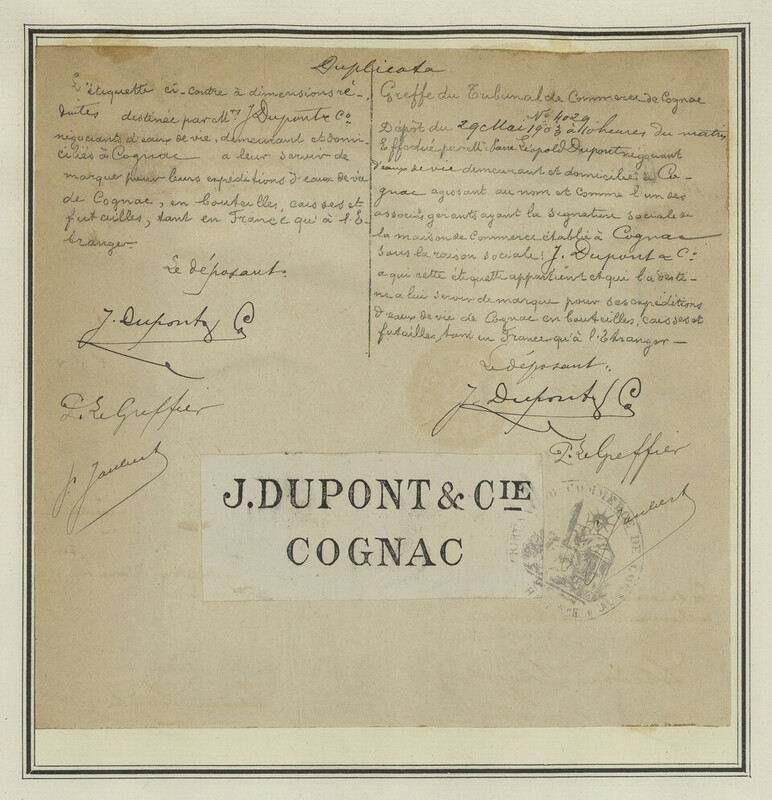 Duplicata
L'étiquette ci-contre à dimensions ré-
duites destinée par MM. J. Dupont & Co
négociants d'eaux de vie, demeurant et domi-
ciliés à Cognac a leur servir de
marque pour leurs expéditions d'eaux de vie
de Cognac, en bouteilles, caisses et
futailles, tant en France qu'à l'E-
tranger.
Le déposant.
J. Dupont & Co
P. Le Greffier
Jaubert
Greffe du Tribunal de Commerce de Cognac
No 4029
Dépôt du 29 Mai 1903 à 10 heures du matin
Effectué par Mr Léopold Dupont négociant
d'eaux de vie demeurant et domicilié à Co-
gnac agissant au nom et comme l'un des
associés gérants ayant la signature sociale de
la maison de Commerce établie à Cognac
sous la raison sociale: J. Dupont & Co
a qui cette étiquette appartient et qui l'a desti-
née a lui servir de marque pour ses expéditions
d'eaux de vie de Cognac en bouteilles, caisses et
futailles, tant en France qu'à l'Etranger —
Le déposant.
J. Dupont & Co
P. Le Greffier
Jaubert
J. DUPONT & CIE
COGNAC
COMMERCE DE COGNAC